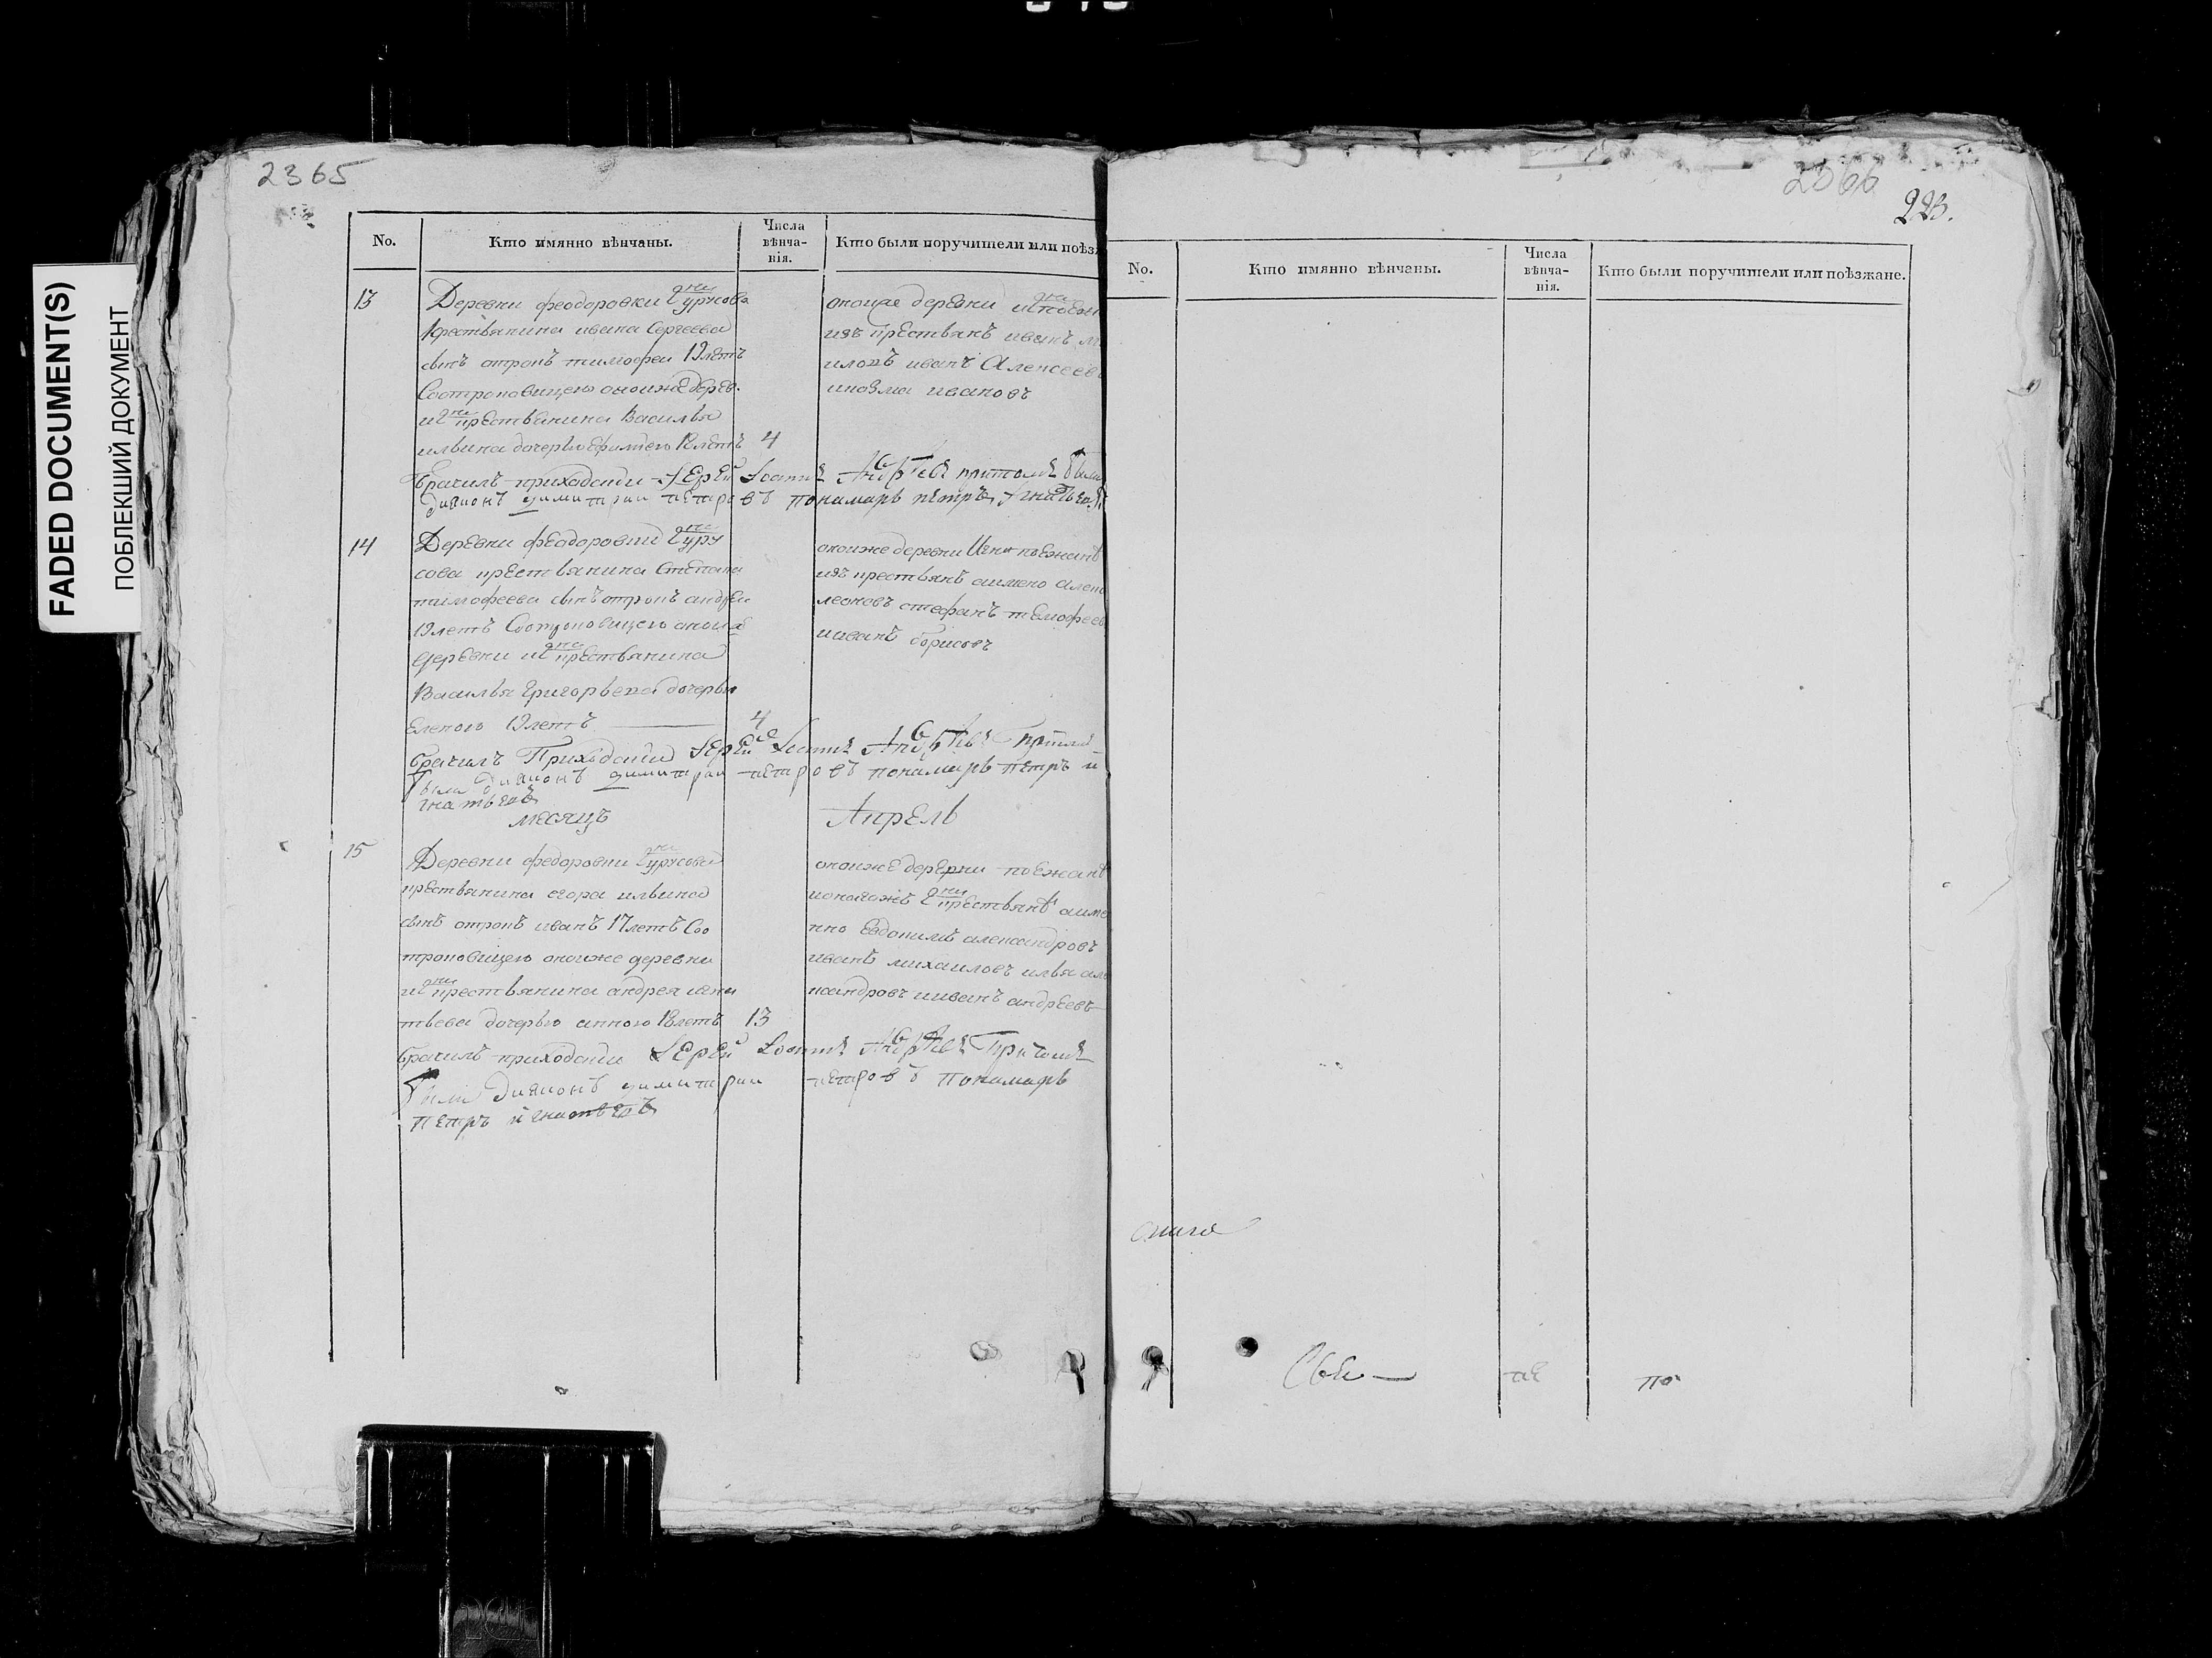 FADED DOCUMENT(S)
ПОБЛЕКШИЙ ДОКУМЕНТ
2365
No.
Кто имянно вѣнчаны.
Числа
вѣнча-
нія.
Кто были поручители или поѣзж
13
Деревни феодоровки гдна урусова
крестьянина ивана Сергеева
снъ отрокъ тимофеи 19 летъ
Соотроковицею оноиже дерев.
игдна крестьянина Василья
ильина дочерью 18 летъ 4
Брачилъ приходскии Иереи Иоаннъ Андреевъ притомъ были
диаконъ димитрии петровъ понамарь петръ игнатьевъ
оноиже деревни
изъ крестьянъ иванъ
иванъ Алексеев
икозма ивановъ
14
Деревни феодоровки гдна уру
сова крестьянина Степана
тимофеева снъ отрокъ андреи
19 летъ Соотроковицею оноиже
деревни игдна крестьянина
Василья григорьева дочерью
Еленою 19 летъ 4
брачилъ Приходскии Иереи Иоаннъ Андреевъ притомъ
были диаконъ димитрии петровъ понамарь петръ и
гнатьевъ
оноиже деревни поежанѣ
изъ крестьянъ аимено
стефанъ тимофеев
ииванъ борисовъ
месяцъ Апрель
15
Деревни федоровки гдна урусова
крестьянина егора ильина
снъ отрокъ иванъ 17 летъ Соо
троковицею оноиже деревни
игдна крестьянина андрея игна
тьева дочерью анною 18 летъ 13
брачилъ приходскии Иереи Иоаннъ Андреевъ Притомъ
были диаконъ димитрии петровъ понамарь
петръ игнатьевъ
оноиже деревни поежанѣ
гдна крестьянѣ аиме
нно Евдокимъ александровъ
иванъ михаиловъ илья але
ксандровъ ииванъ андреевъ
2366
223.
No.
Кто имянно вѣнчаны.
Числа
вѣнча-
нія.
Кто были поручители или поѣзжане.
по